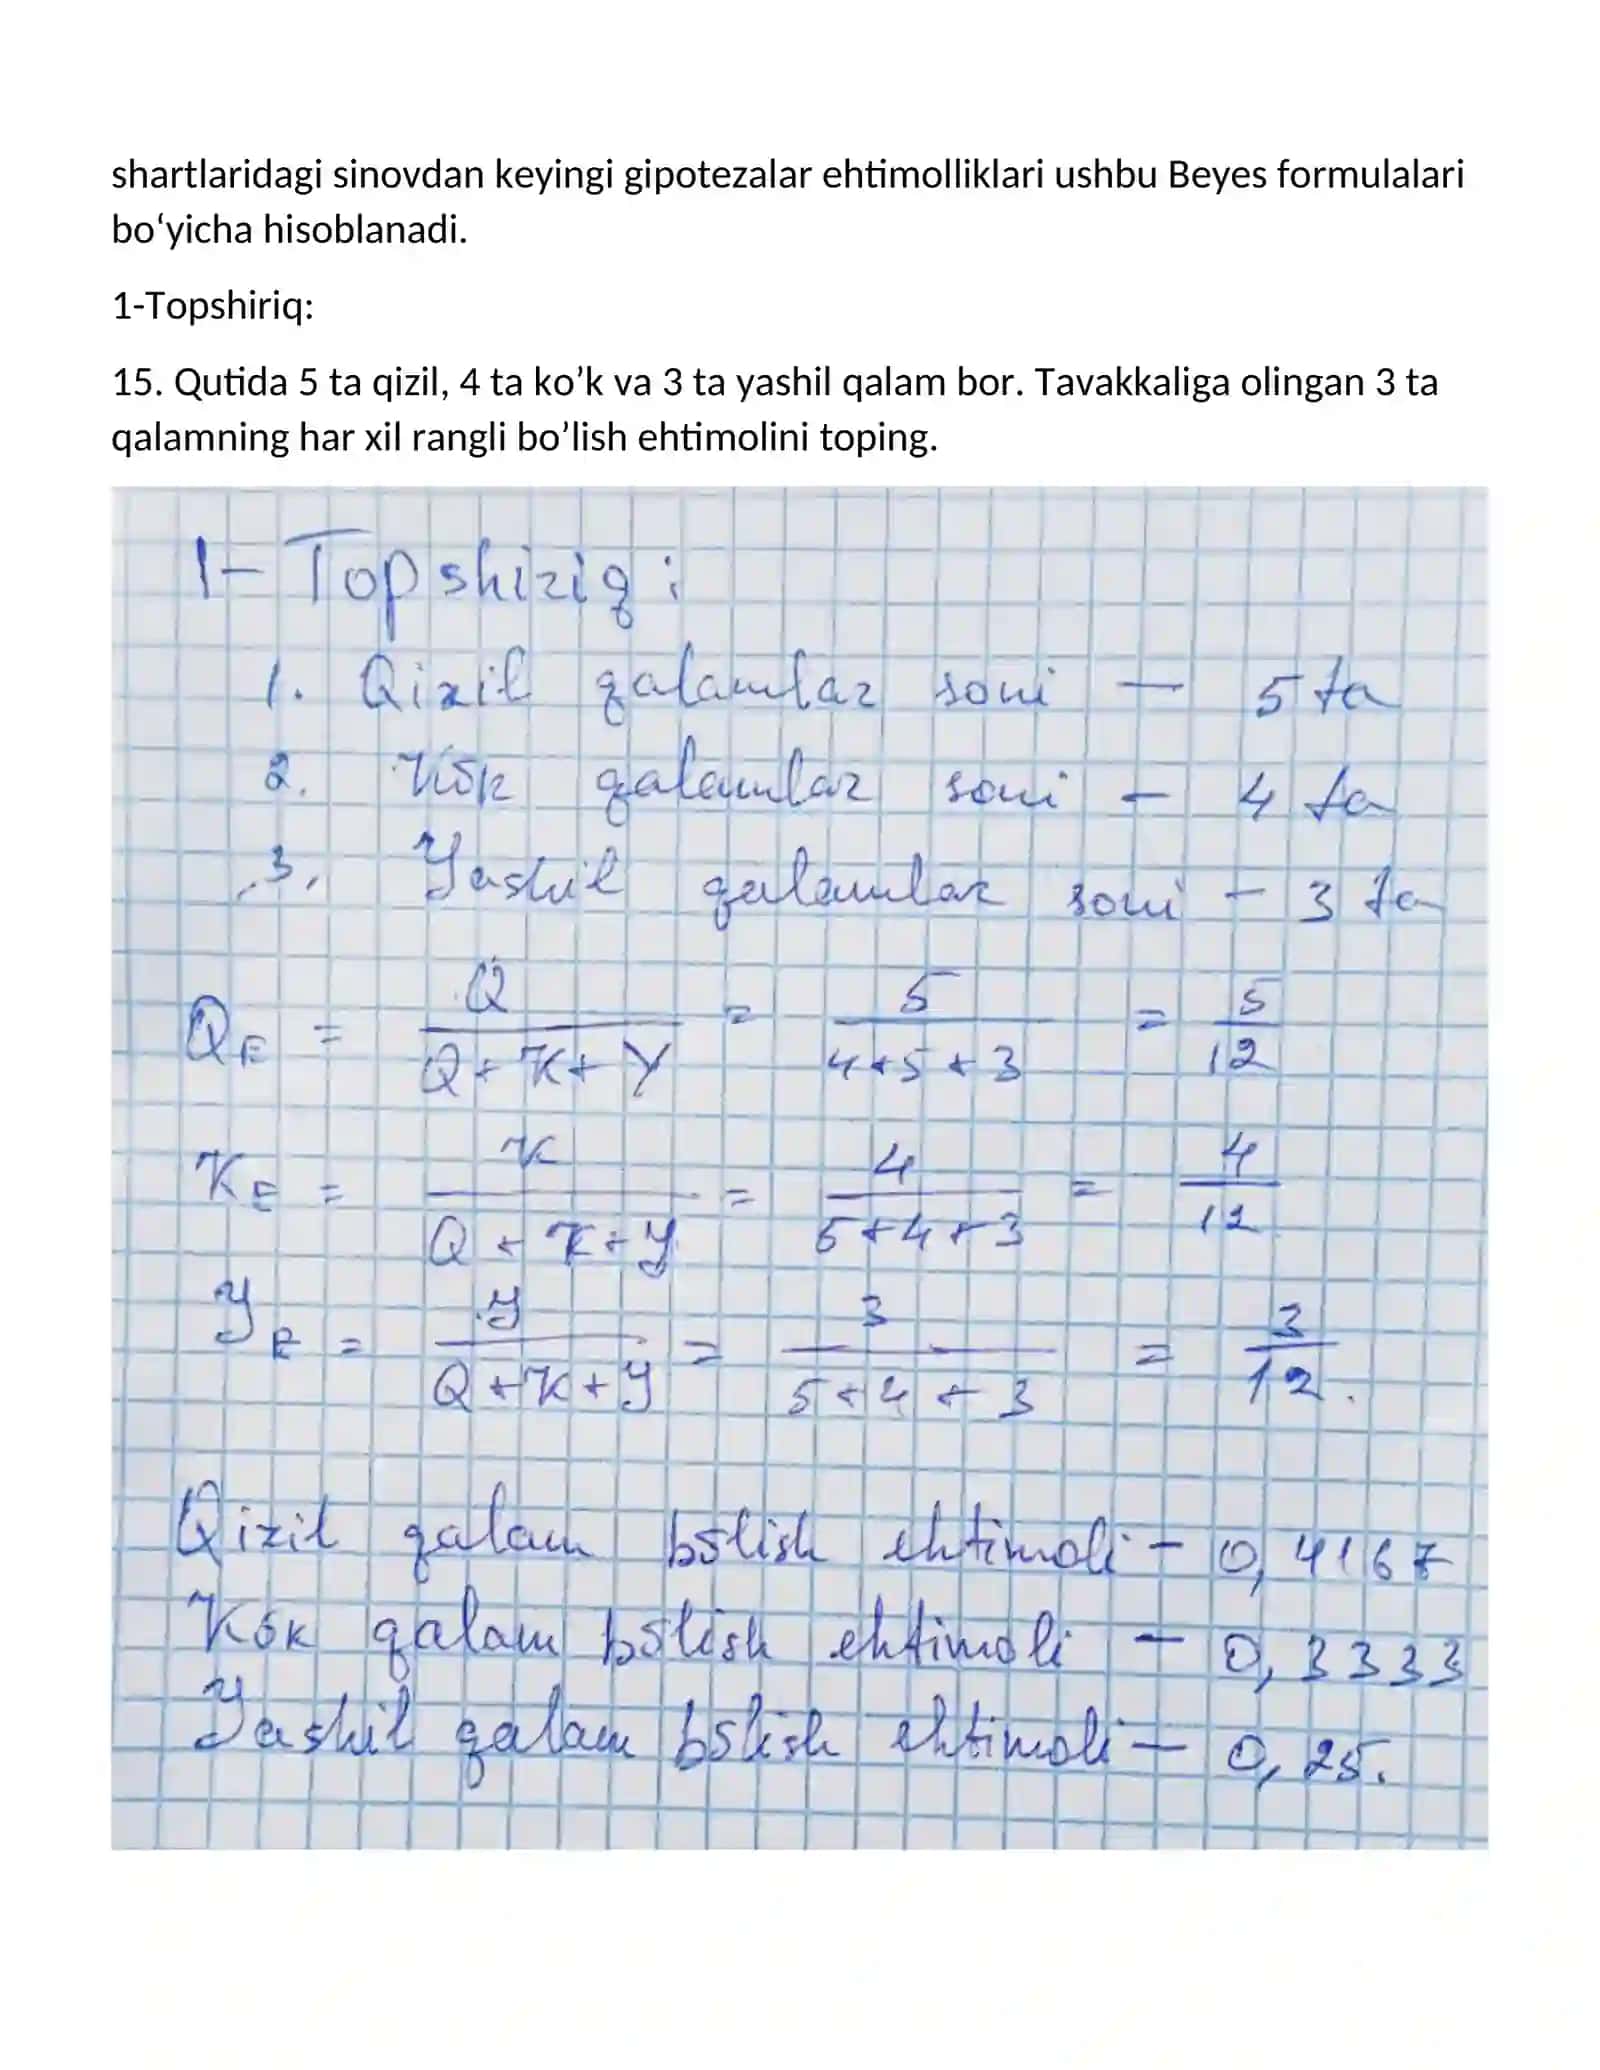 shartlaridagi sinovdan keyingi gipotezalar ehtimolliklari ushbu Beyes formulalari
bo‘yicha hisoblanadi.
1-Topshiriq:
15. Qutida 5 ta qizil, 4 ta ko’k va 3 ta yashil qalam bor. Tavakkaliga olingan 3 ta
qalamning har xil rangli bo’lish ehtimolini toping.
1-Topshiriq:
1. Qizil qalamlar soni — 5 ta
2. Kõk qalamlar soni – 4 ta
3. Yashil qalamlar soni – 3 ta
Q_E = Q / (Q+K+Y) = 5 / (4+5+3) = 5/12
K_E = K / (Q+K+Y) = 4 / (5+4+3) = 4/12
Y_E = Y / (Q+K+Y) = 3 / (5+4+3) = 3/12.
Qizil qalam bõlish ehtimoli – 0,4167
Kõk qalam bõlish ehtimoli – 0,3333
Yashil qalam bõlish ehtimoli – 0,25.